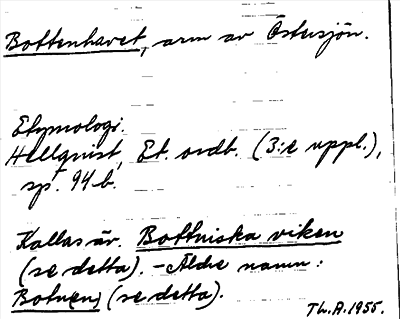 Bottenhavet, arm av Östersjön.
Etymologi.
Hellquist, Et. ordb. (3:e uppl.),
sp. 94 b.
Kallas äv. Bottniska viken
(se detta). - Äldre namn:
Botn(en) (se detta).
Th.A. 1955.